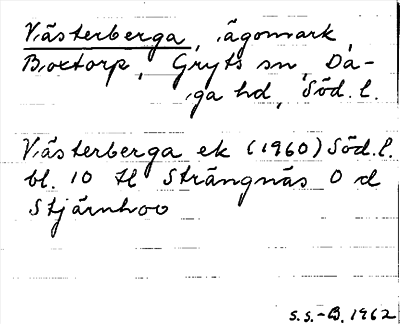 Västerberga, ägomark,
Boxtorp, Gryts sn, Då-
ga hd, Söd. l.
Västerberga ek (1960) Söd. l.
bl. 10 tl Strängnäs O d
Stjärnhov
S.S.-B. 1962